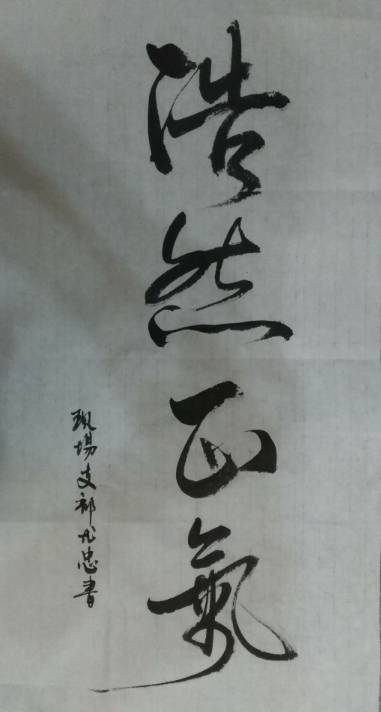 浩然正氣
現場支部尤忠書